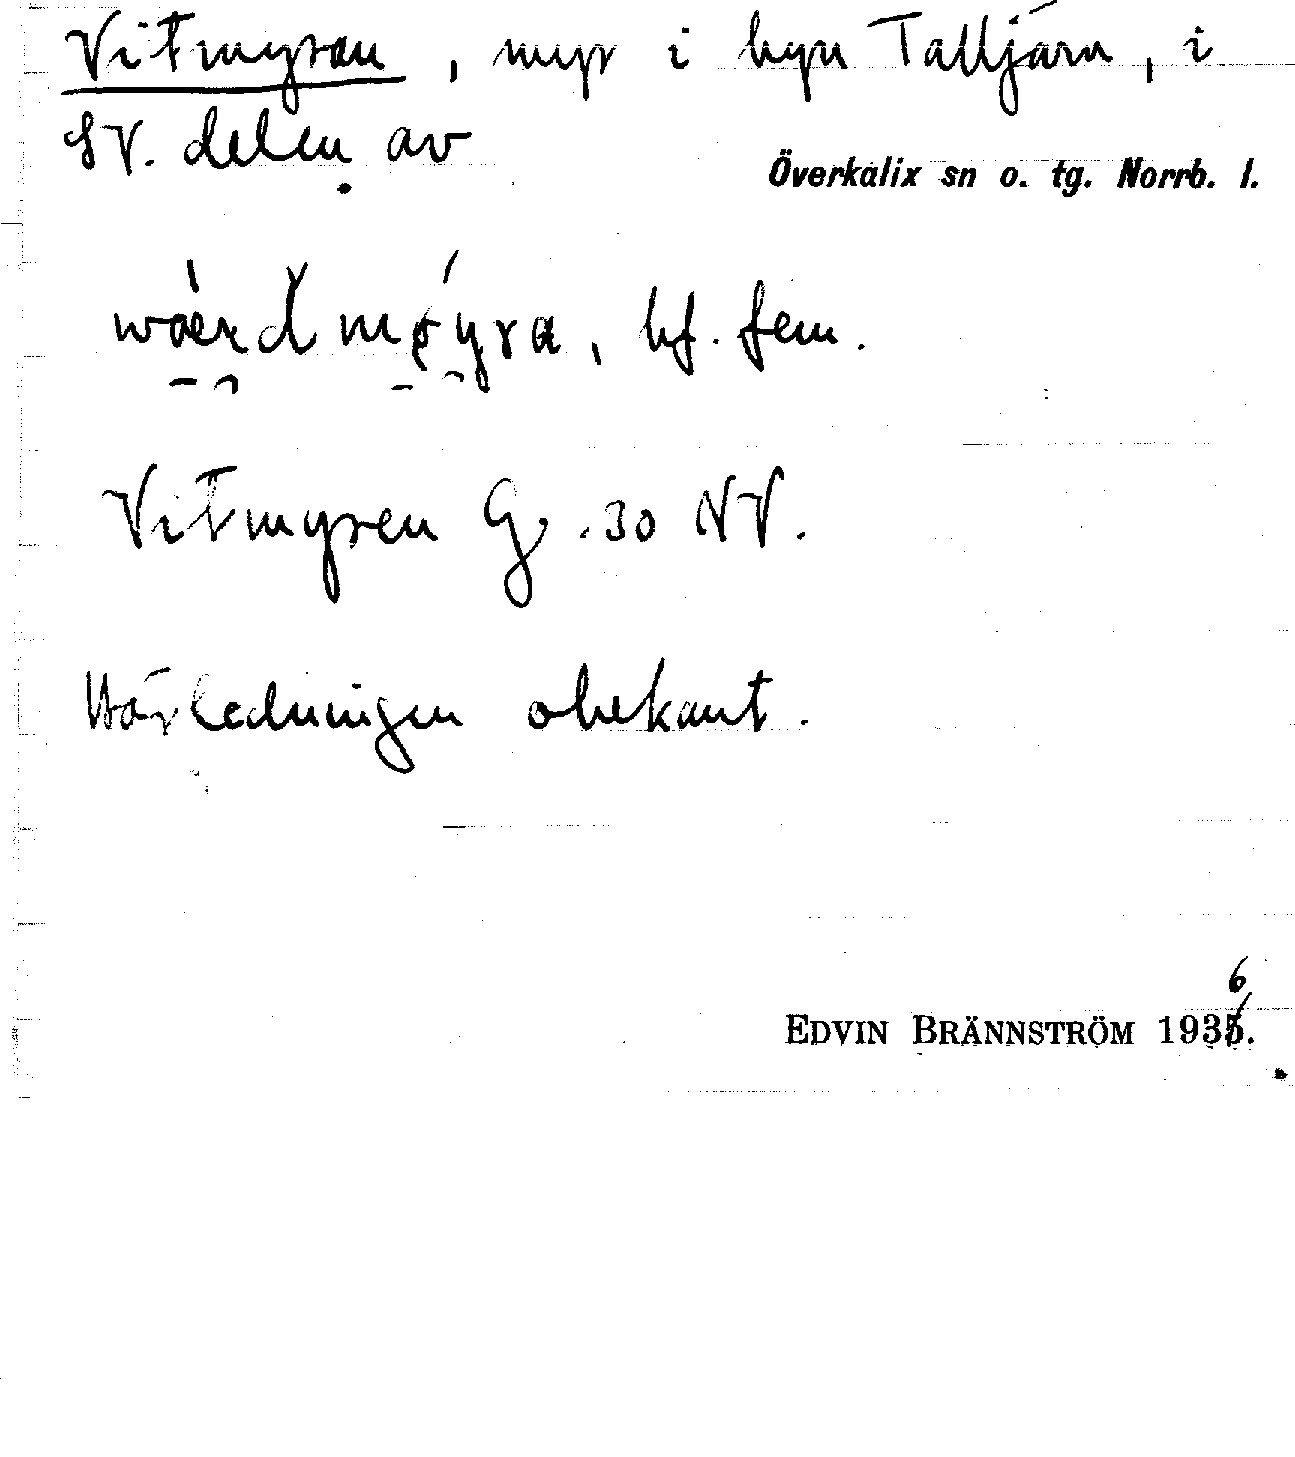 Vitmyran, myr i byn Talljärn, i
SV. delen av
Överkalix sn o. tg. Norrb. l.
bf. fem.
Vitmyren G. 30 NV.
Härledningen obekant.
6
EDVIN BRÄNNSTRÖM 1935.